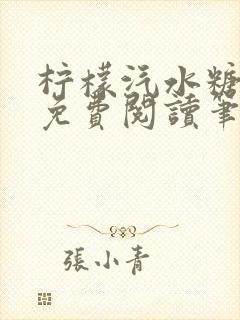 柠檬汽水糖
免費閱讀筆
張小青